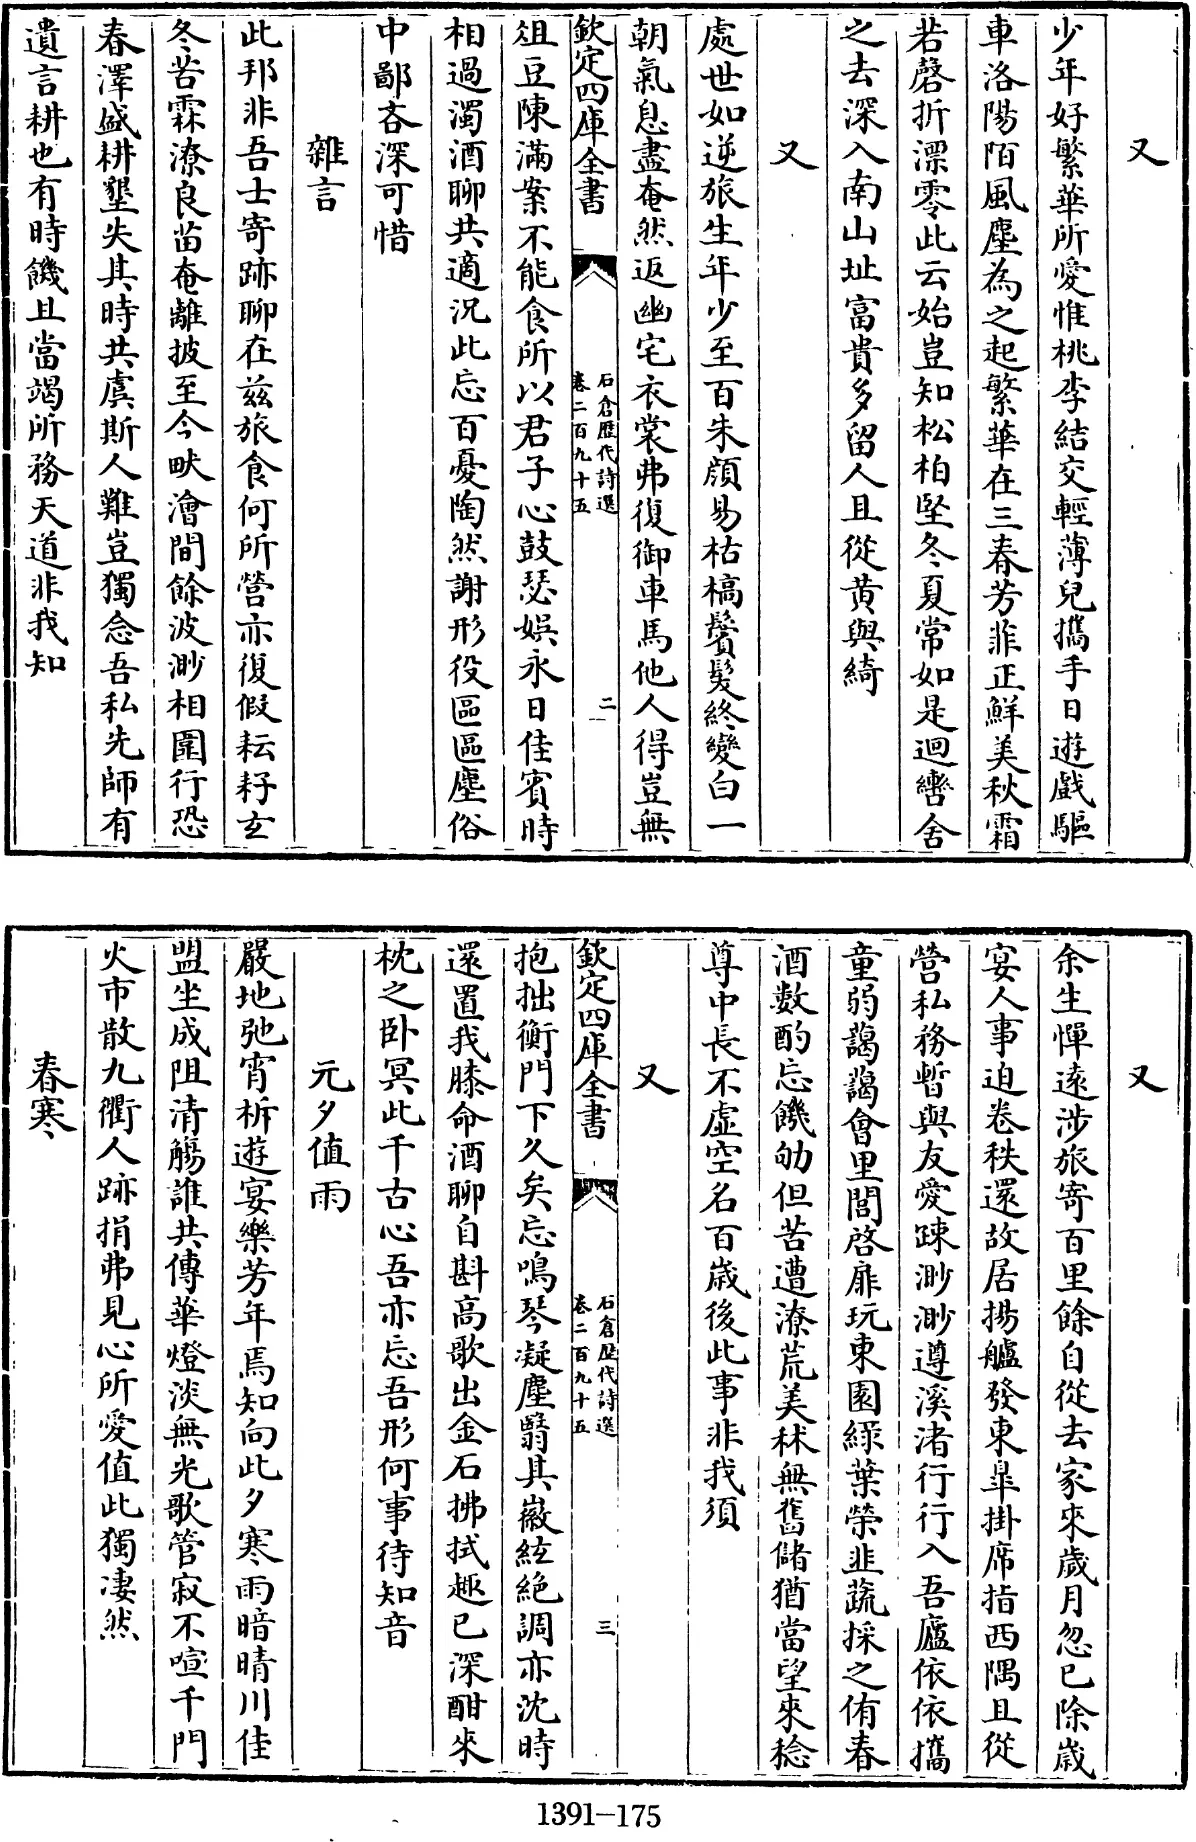 又
少年好繁華所愛惟桃李結交輕薄兒攜手日遊戲驅
車洛陽陌風塵為之起繁華在三春芳菲正鮮美秋霜
若磬折漂零此云始豈知松柏堅冬夏常如是迴轡舍
之去深入南山址富貴多留人且從黄與綺
又
處世如逆旅生年少至百朱顔易枯槁鬢髪終變白一
朝氣息盡奄然返幽宅衣裳弗復御車馬他人得豈無
欽定四庫全書
石倉歴代詩選
卷二百九十五
二
俎豆陳滿案不能食所以君子心鼓瑟娯永日佳賓時
相過濁酒聊共適況此忘百憂陶然謝形役區區塵俗
中鄙吝深可惜
雜言
此邦非吾士寄跡聊在兹旅食何所營亦復假耘耔玄
冬苦霖潦良苗奄離披至今畎澮間餘波渺相圍行恐
春澤盛耕墾失其時共虞斯人難豈獨念吾私先師有
遺言耕也有時饑且當竭所務天道非我知
又
余生憚遠涉旅寄百里餘自從去家來歳月忽已除歳
宴人事迫卷秩還故居揚艫發東臯掛席指西隅且從
營私務暫與友愛疎渺渺遵溪渚行行入吾廬依依攜
童弱藹藹會里閭啓扉玩東園緑葉榮韭蔬採之侑春
酒數酌忘饑劬但苦遭潦荒美秫無舊儲猶當望來稔
尊中長不虚空名百歳後此事非我須
又
欽定四庫全書
石倉歴代詩選
卷二百九十五
三
抱拙衡門下久矣忘鳴琴凝塵翳其徽絃絶調亦沈時
還置我膝命酒聊自斟高歌出金石拂拭趣已深酣來
枕之卧冥此千古心吾亦忘吾形何事待知音
元夕值雨
嚴地弛宵柝遊宴樂芳年焉知向此夕寒雨暗晴川佳
盟坐成阻清觴誰共傳華燈淡無光歌管寂不喧千門
火市散九衢人跡捐弗見心所愛值此獨凄然
春寒
1391-175